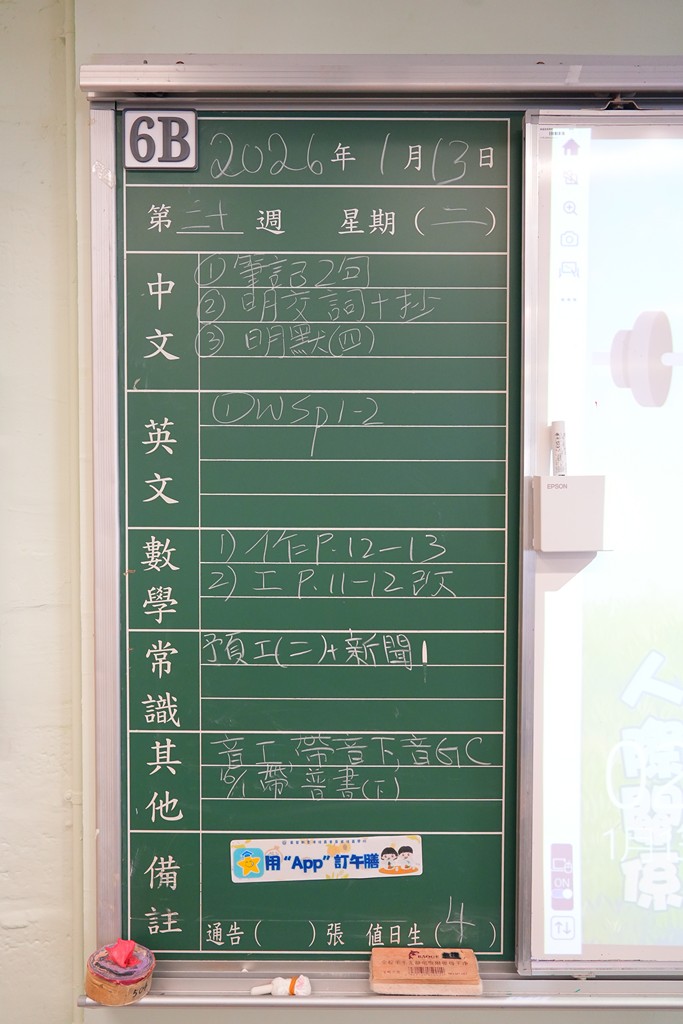 6B 2026年1月13日
第二十週 星期(二)
中文
① 筆記2句
② 明交詞+抄
③ 明默(四)
英文
① WS p1-2
數學
1) 作P.12-13
2) 工P.11-12改
常識
預工(二)+新聞
其他
音工,帶音下,音GC
16/1 帶普書(下)
備註
用“App”訂午膳
通告( )張 值日生(4)
EPSON
ON
人際關係